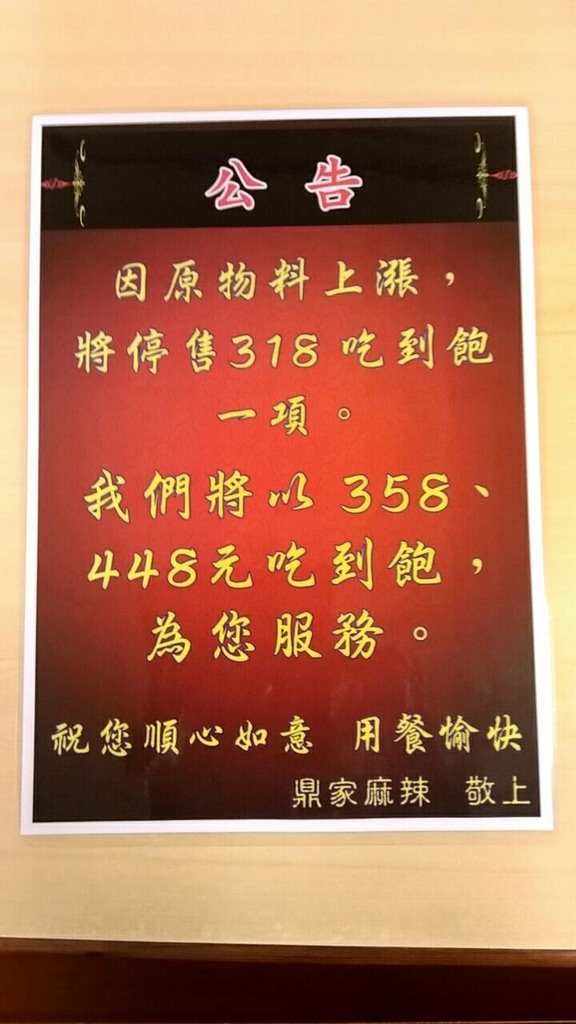 公告
因原物料上漲，
將停售318 吃到飽
一項。
我們將以 358、
448元吃到飽，
為您服務。
祝您順心如意 用餐愉快
鼎家麻辣 敬上